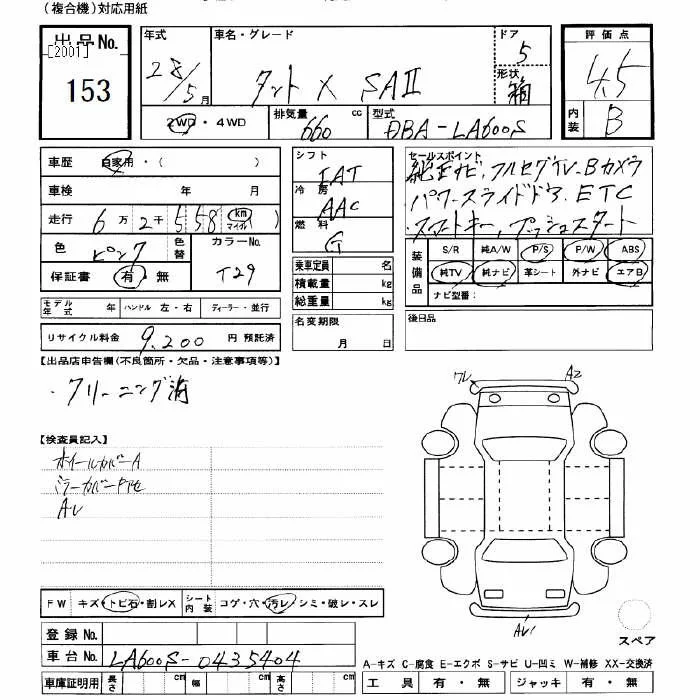 (複合機)対応用紙
出品No.
[2001]
153
年式
28/5 月
車名・グレード
タント X SAⅡ
ドア
5
形状
箱
評価点
4.5
内装
B
2WD・4WD
排気量
660 cc
型式
DBA-LA600S
車歴 自家用・( )
車検 年 月
走行 6万2千558 km マイル
色 ピンク
色替
カラーNo.
T29
保証書 有・無
モデル年式 年 ハンドル 左・右 ディーラー・並行
リサイクル料金 9,200 円 預託済
シフト
IAT
冷房
AAC
燃料
G
乗車定員 名
積載量 kg
総重量 kg
名変期限
月 日
セールスポイント
純正ナビ.フルセグTV.Bカメラ
パワースライドドア.ETC
スマートキー,プッシュスタート
装備品
S/R 純A/W P/S P/W ABS
純TV 純ナビ 革シート 外ナビ エアB
ナビ型番:
後日品
【出品店申告欄(不良箇所・欠品・注意事項等)】
・クリーニング済
【検査員記入】
ホイールカバーA
ミラーカバー下地
AU
ワレ
A2
AU
FW キズ・トビ石・割レX シート内装 コゲ・穴・汚レ・シミ・破レ・スレ
登録No.
車台No. LA600S-0435404
車庫証明用 長さ cm 幅 cm 高さ cm
スペア
A-キズ C-腐食 E-エクボ S-サビ U-凹ミ W-補修 XX-交換済
工具 有・無 ジャッキ 有・無